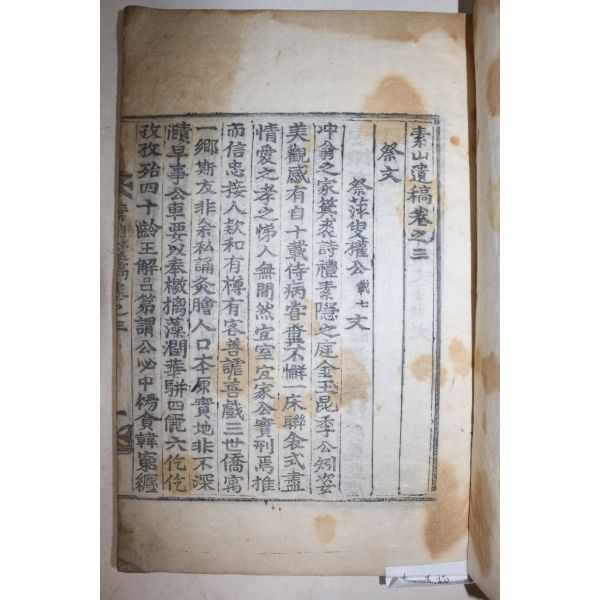 素山遺稿卷之三
祭文
祭萍叟權公載七文
冲翁之家箕裘詩禮素隱之庭金玉昆季公矧姿
美觀感有自十載侍病嘗糞不懈一床聯衾式盡
情愛之孝之悌人無間然宜室宜家公實刑焉推
而信忠接人款和有樽有客善謔善戲三世僑寓
一鄉斯友非翁私誦灸膾人口本原實地非不深
早事公車要以奉檄摛藻潤華騈四儷六仡仡
孜孜殆四十齡王解呂第謂公必中楊貪韓窮纒